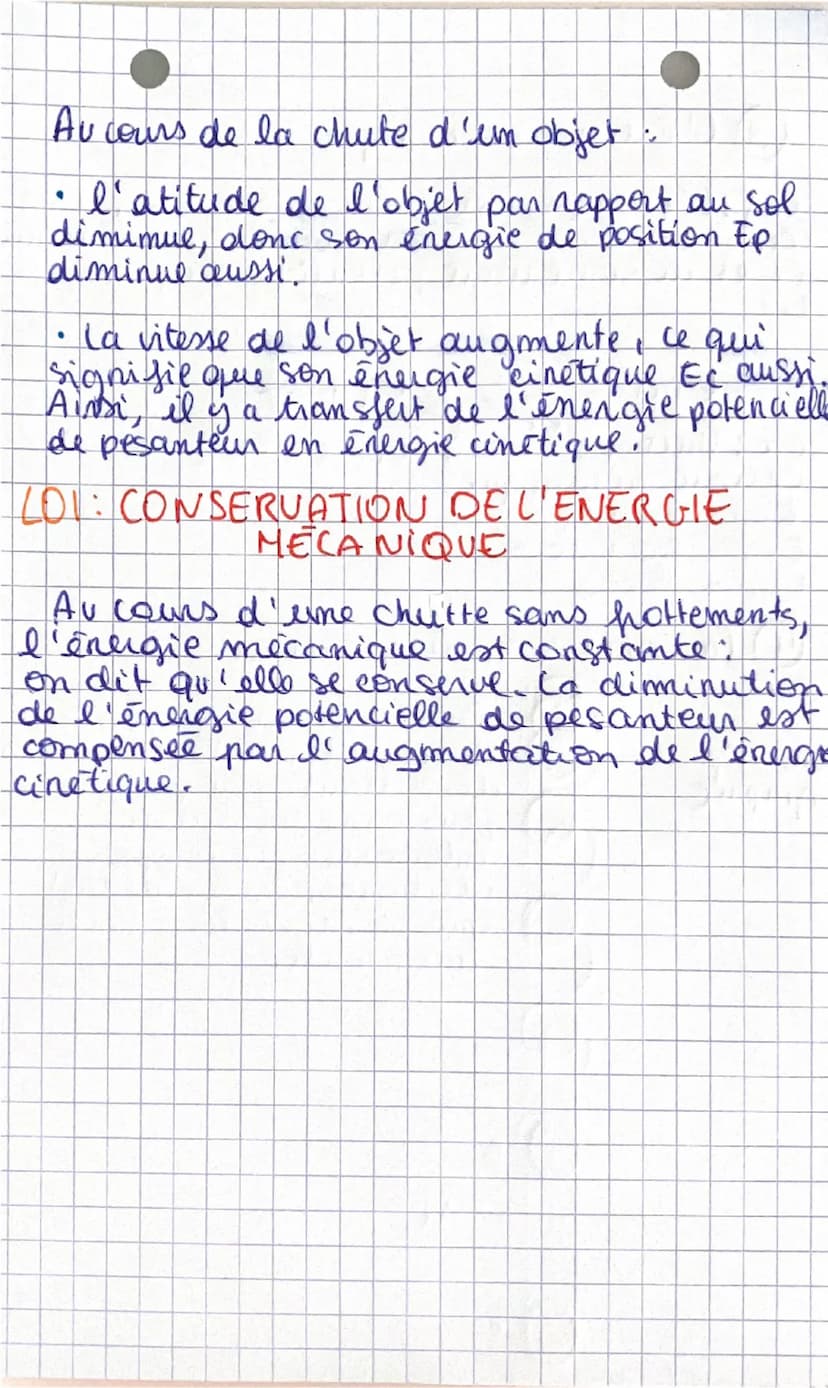 Au cours de la chute d'un objet :
• l'atitude de l'objet par rapport au sol
diminue, donc son énergie de position Ep
diminue aussi.
• La vitesse de l'objet augmente, ce qui
signifie que son énergie cinétique Ec aussi.
Ainsi, il y a transfert de l'énergie potencielle
de pesanteur en énergie cinétique.
LOI : CONSERVATION DE L'ENERGIE
MÉCANIQUE
Au cours d'une chutte sans frottements,
l'énergie mécanique est constante :
on dit qu'elle se conserve. La diminution
de l'énergie potencielle de pesanteur est
compensée par l'augmentation de l'énergie
cinétique.